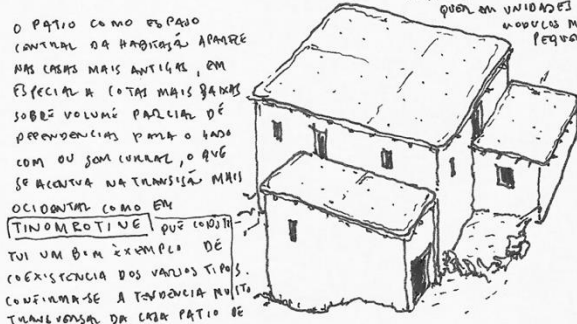 O PÁTIO COMO ESPAÇO
CENTRAL DA HABITAÇÃO APARECE
NAS CASAS MAIS ANTIGAS, EM
ESPECIAL A COTAS MAIS BAIXAS
SOBRE VOLUME PARCIAL DE
DEPENDENCIAS PARA O GADO
COM OU SEM CURRAL, O QUE
SE ACENTUA NA TRANSIÇÃO MAIS
OCIDENTAL COMO EM
TINOMROTINE QUE CONSTI-
TUI UM BOM EXEMPLO DE
COEXISTENCIA DOS VARIOS TIPOS.
CONFIRMA-SE A TENDENCIA MUITO
TRANSVERSAL DA CASA PATIO DE
QUER EM UNIDADES
MODULOS M
PEQUE